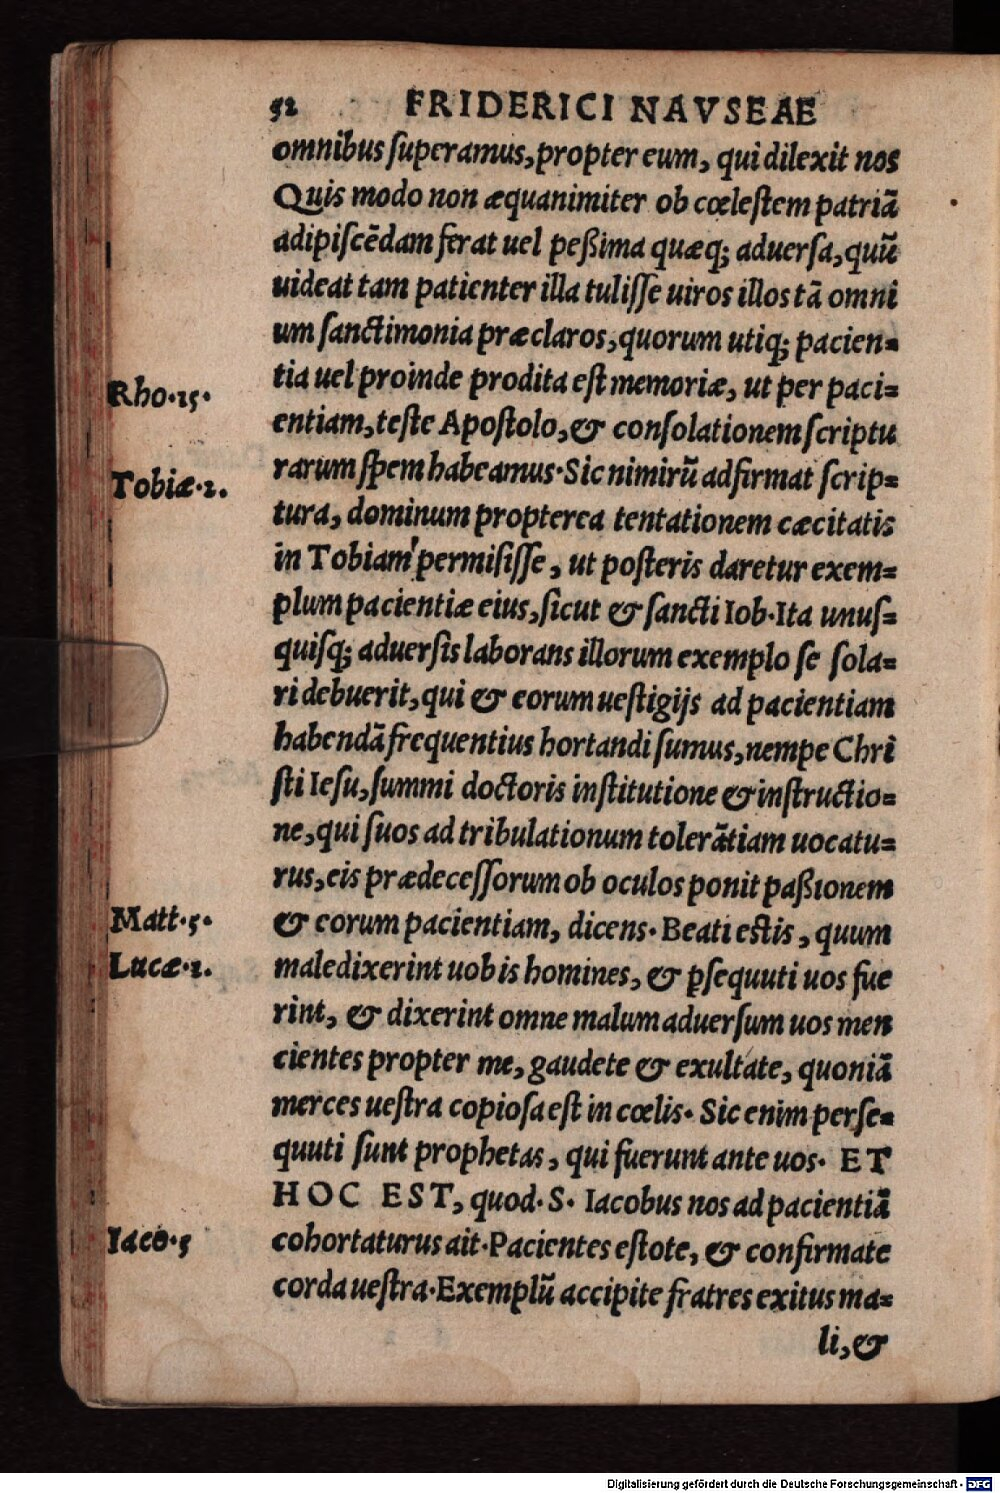 52 FRIDERICI NAVSEAE
omnibus ſuperamus, propter eum, qui dilexit nos
Quis modo non æquanimiter ob cœleſtem patriã
adipiſcẽdam ferat uel peßima quæq; aduerſa, quũ
uideat tam patienter illa tuliſſe uiros illos tã omni
um ſanctimonia præclaros, quorum utiq; pacien=
tia uel proinde prodita eſt memoriæ, ut per paci=
Rho.15.
entiam, teſte Apoſtolo, & conſolationem ſcriptu
rarum ſpem habeamus. Sic nimirũ adfirmat ſcrip=
Tobiæ.2.
tura, dominum propterea tentationem cæcitatis
in Tobiam permiſiſſe, ut poſteris daretur exem=
plum pacientiæ eius, ſicut & ſancti Iob. Ita unuſ=
quiſq; aduerſis laborans illorum exemplo ſe ſola=
ri debuerit, qui & eorum ueſtigijs ad pacientiam
habendã frequentius hortandi ſumus, nempe Chri
ſti Ieſu, ſummi doctoris inſtitutione & inſtructio=
ne, qui ſuos ad tribulationum tolerãtiam uocatu=
rus, eis prædeceſſorum ob oculos ponit paßionem
Matt.5.
& eorum pacientiam, dicens. Beati eſtis, quum
Lucæ.2.
maledixerint uobis homines, & ꝑſequuti uos fue
rint, & dixerint omne malum aduerſum uos men
cientes propter me, gaudete & exultate, quoniã
merces ueſtra copioſa eſt in cœlis. Sic enim perſe=
quuti ſunt prophetas, qui fuerunt ante uos. ET
HOC EST, quod. S. Iacobus nos ad pacientiã
Iaco.5
cohortaturus ait. Pacientes eſtote, & confirmate
corda ueſtra. Exemplũ accipite fratres exitus ma=
li, &
Digitalisierung gefördert durch die Deutsche Forschungsgemeinschaft - DFG